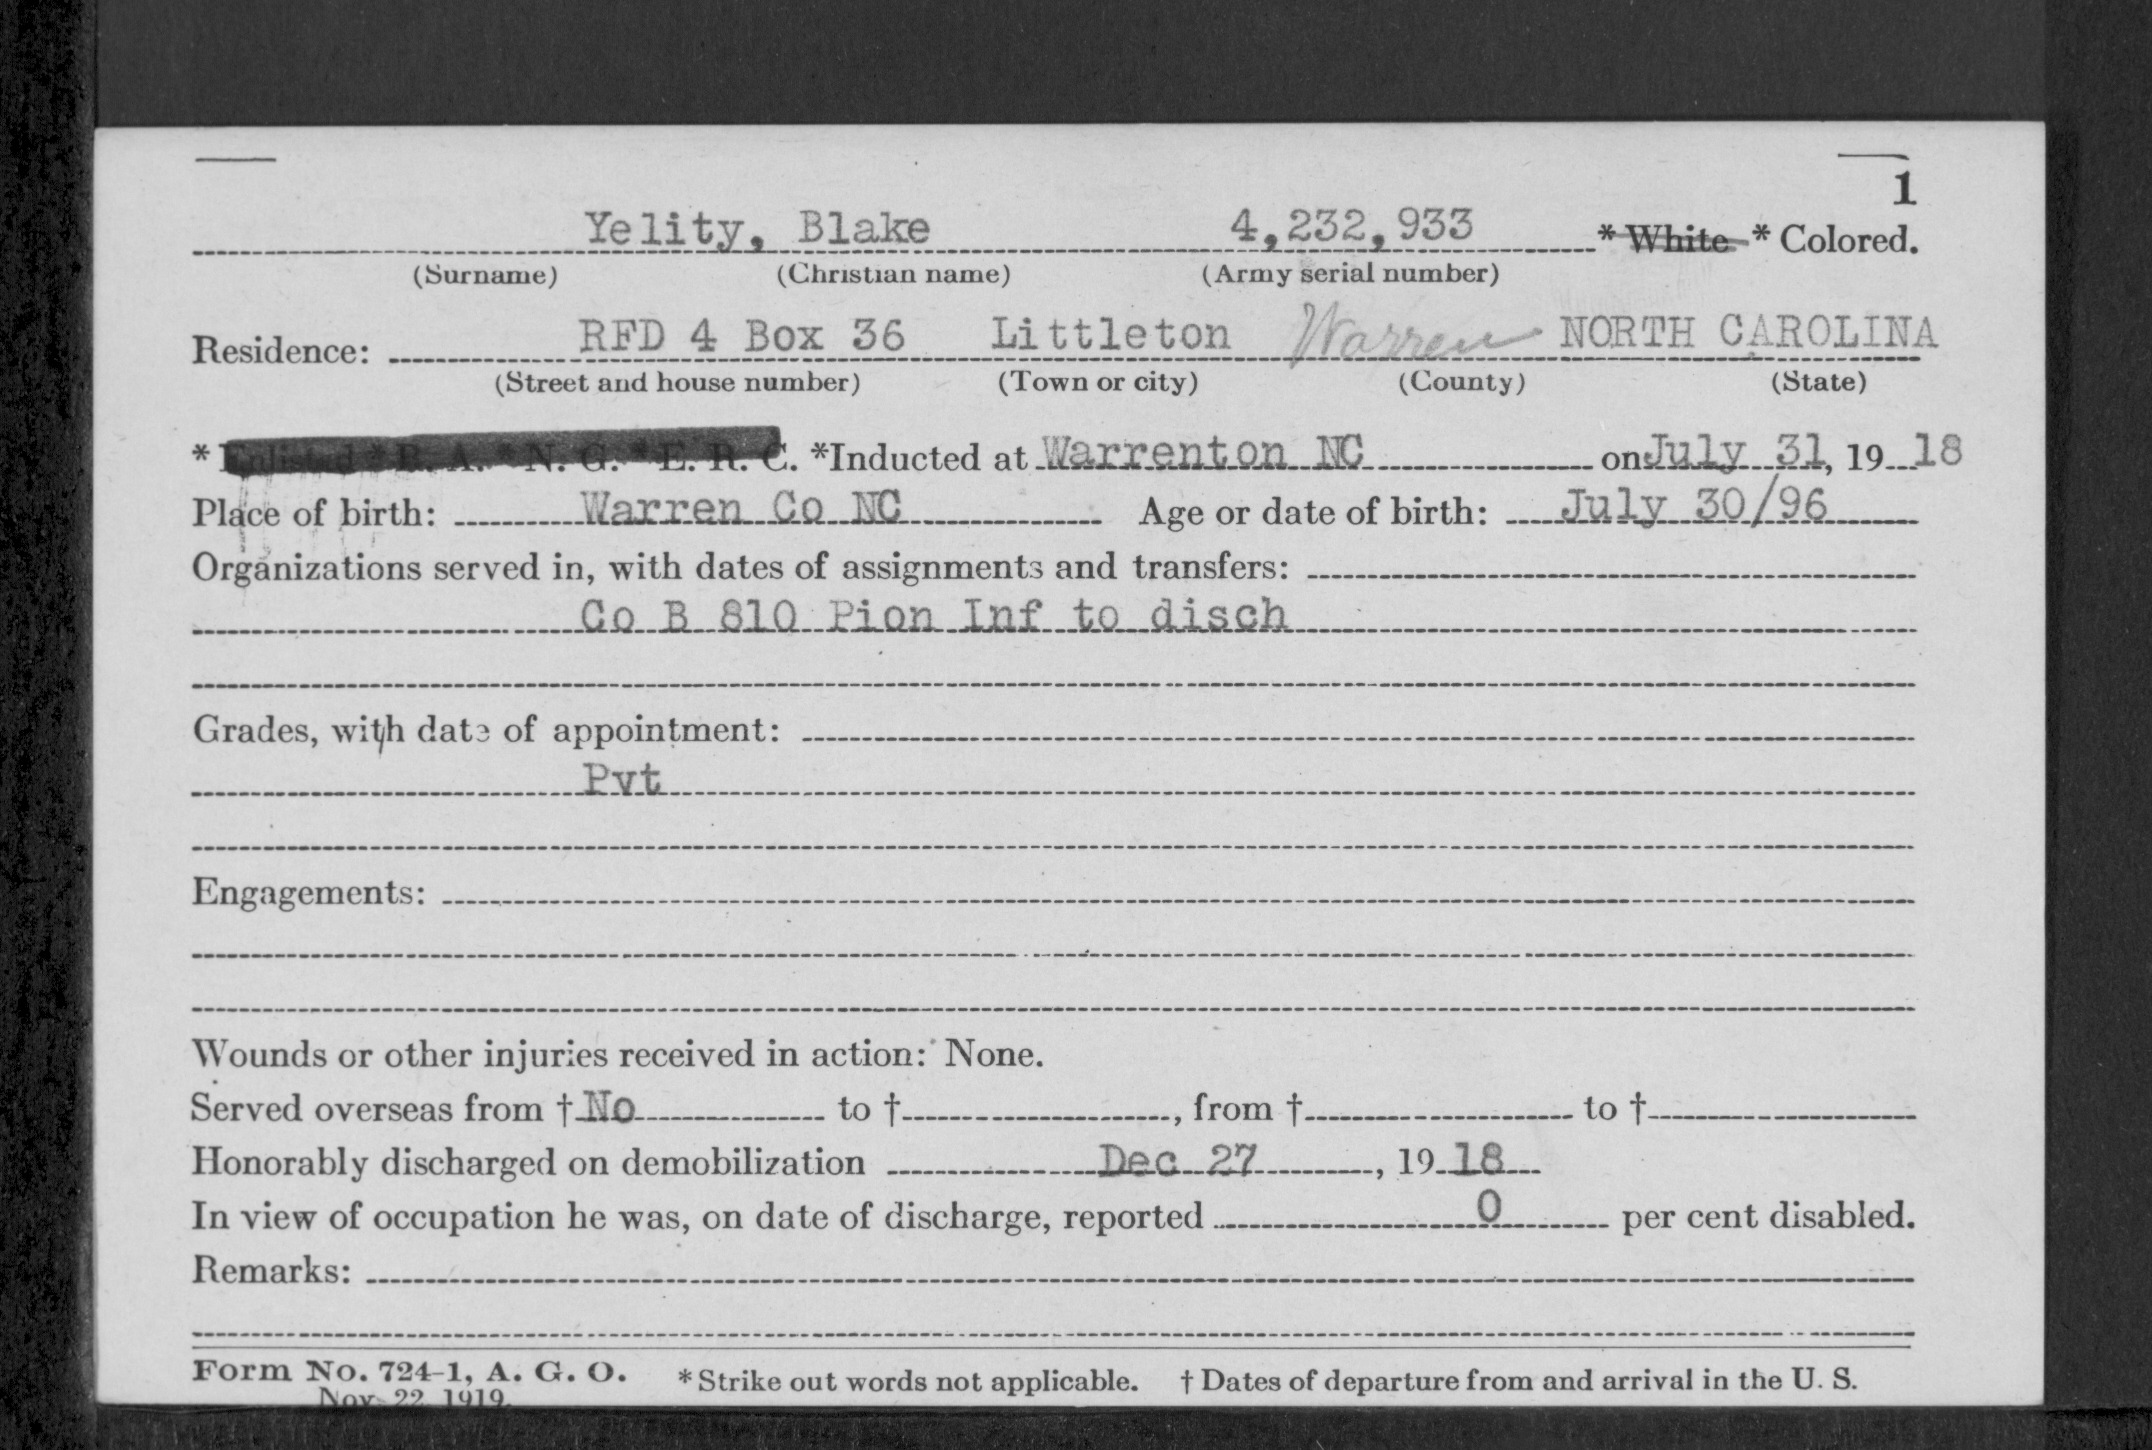 1
Yelity, Blake 4,232,933 * White * Colored.
(Surname) (Christian name) (Army serial number)
Residence: RFD 4 Box 36 Littleton Warren NORTH CAROLINA
(Street and house number) (Town or city) (County) (State)
* Enlisted * R. A. * N. G. * E. R. C. *Inducted at Warrenton NC on July 31, 19 18
Place of birth: Warren Co NC Age or date of birth: July 30/96
Organizations served in, with dates of assignments and transfers:
Co B 810 Pion Inf to disch
Grades, with date of appointment:
Pvt
Engagements:
Wounds or other injuries received in action: None.
Served overseas from † No to †, from † to †
Honorably discharged on demobilization Dec 27, 19 18
In view of occupation he was, on date of discharge, reported 0 per cent disabled.
Remarks:
Form No. 724-1, A. G. O. * Strike out words not applicable. † Dates of departure from and arrival in the U. S.
Nov. 22, 1919.